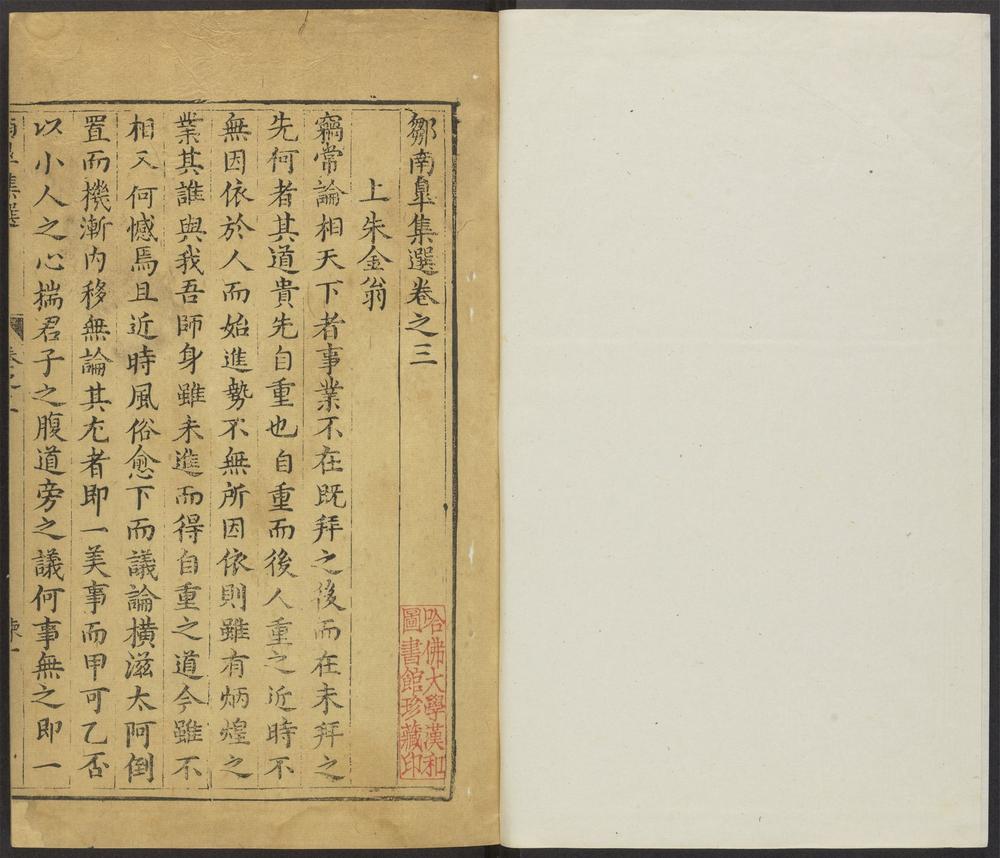 鄒南臯集選卷之三
上朱金翁
竊常論相天下者事業不在既拜之後而在未拜之
先何者其道貴先自重也自重而後人重之近時不
無因依於人而始進勢不無所因依則雖有炳煌之
業其誰與我吾師身雖未進而得自重之道今雖不
相又何憾焉且近時風俗愈下而議論橫滋太阿倒
置而機漸內移無論其尤者即一美事而甲可乙否
以小人之心揣君子之腹道旁之議何事無之即一
集選
卷之
哈佛大學漢和
圖書館珍藏印